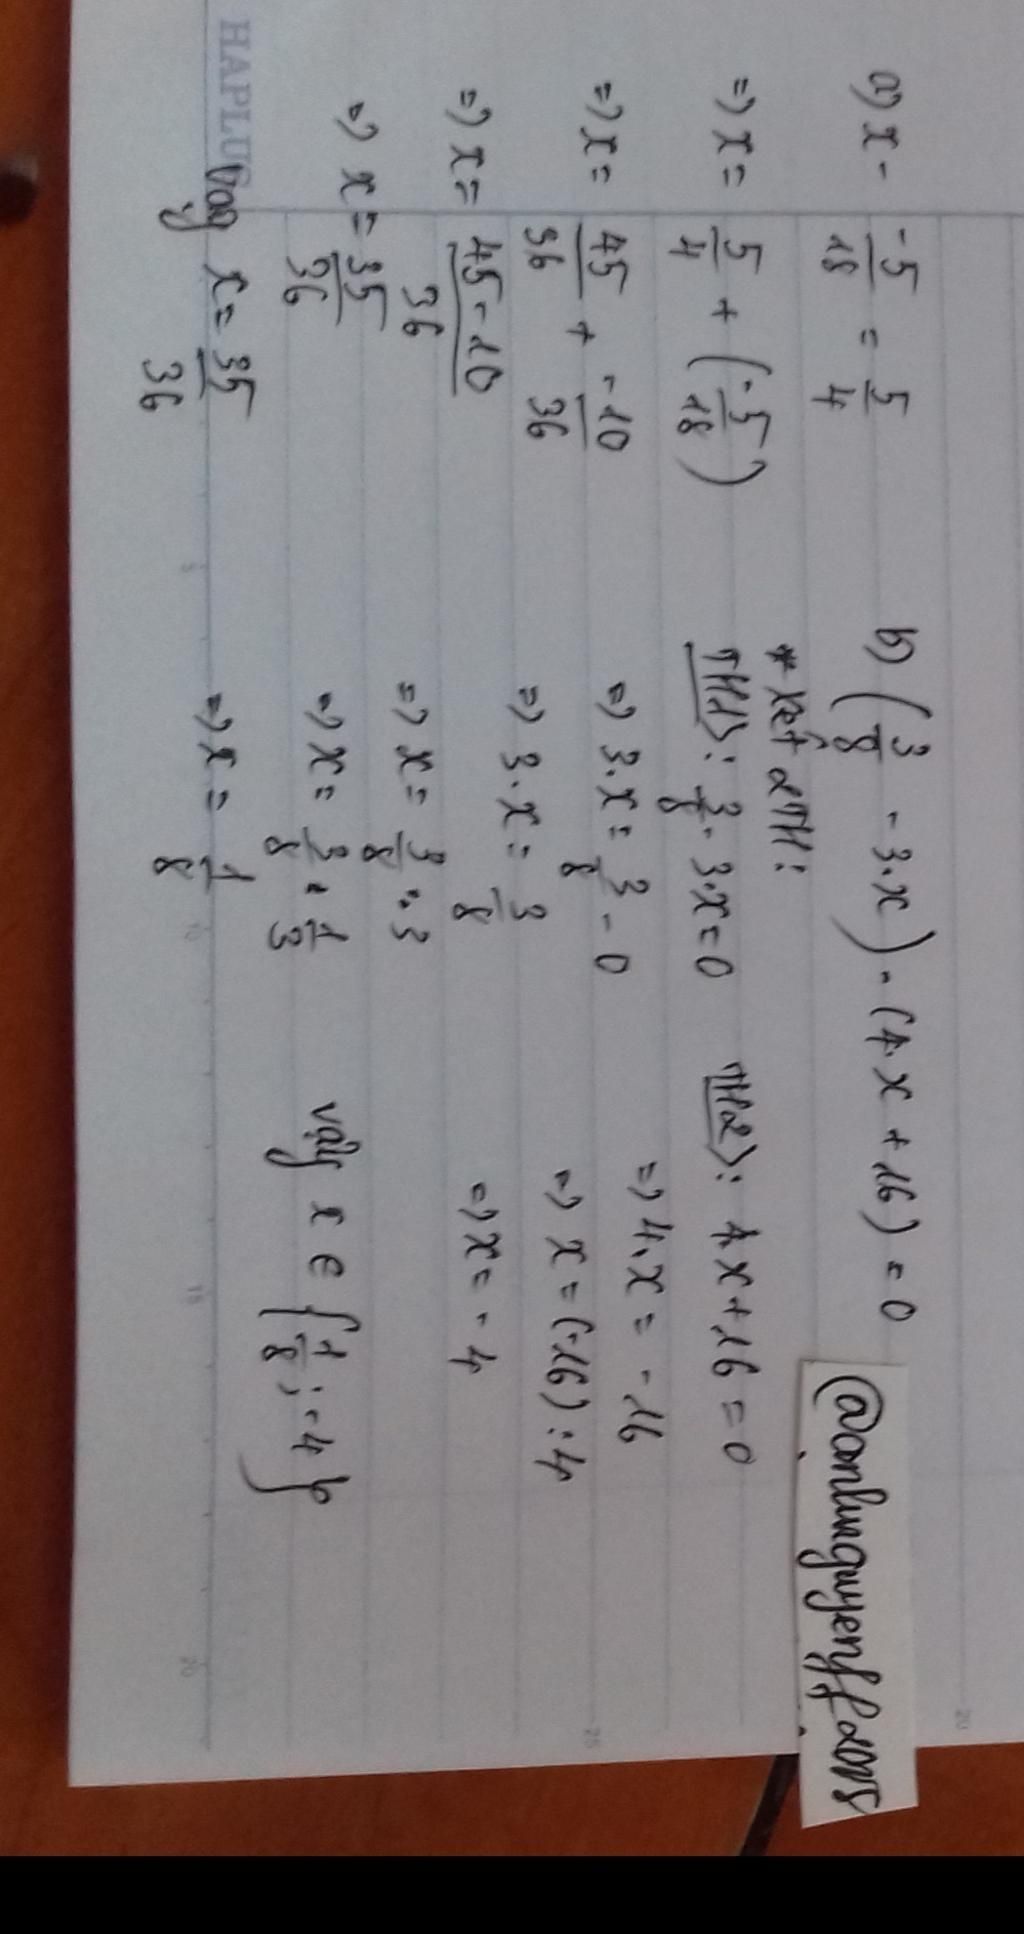 a) x - -5/18 = 5/4
=> x = 5/4 + (-5/18)
=> x = 45/36 + -10/36
=> x = 45-10/36
=> x = 35/36
Vậy x = 35/36
b) (3/8 - 3.x) . (4.x + 16) = 0
* Xét 2TH:
TH1>: 3/8 - 3.x = 0
=> 3.x = 3/8 - 0
=> 3.x = 3/8
=> x = 3/8 : 3
=> x = 3/8 . 1/3
=> x = 1/8
TH2>: 4.x + 16 = 0
=> 4.x = -16
=> x = (-16) : 4
=> x = -4
Vậy x ∈ {1/8 ; -4}
HAPLU
5
10
15
20
25
20